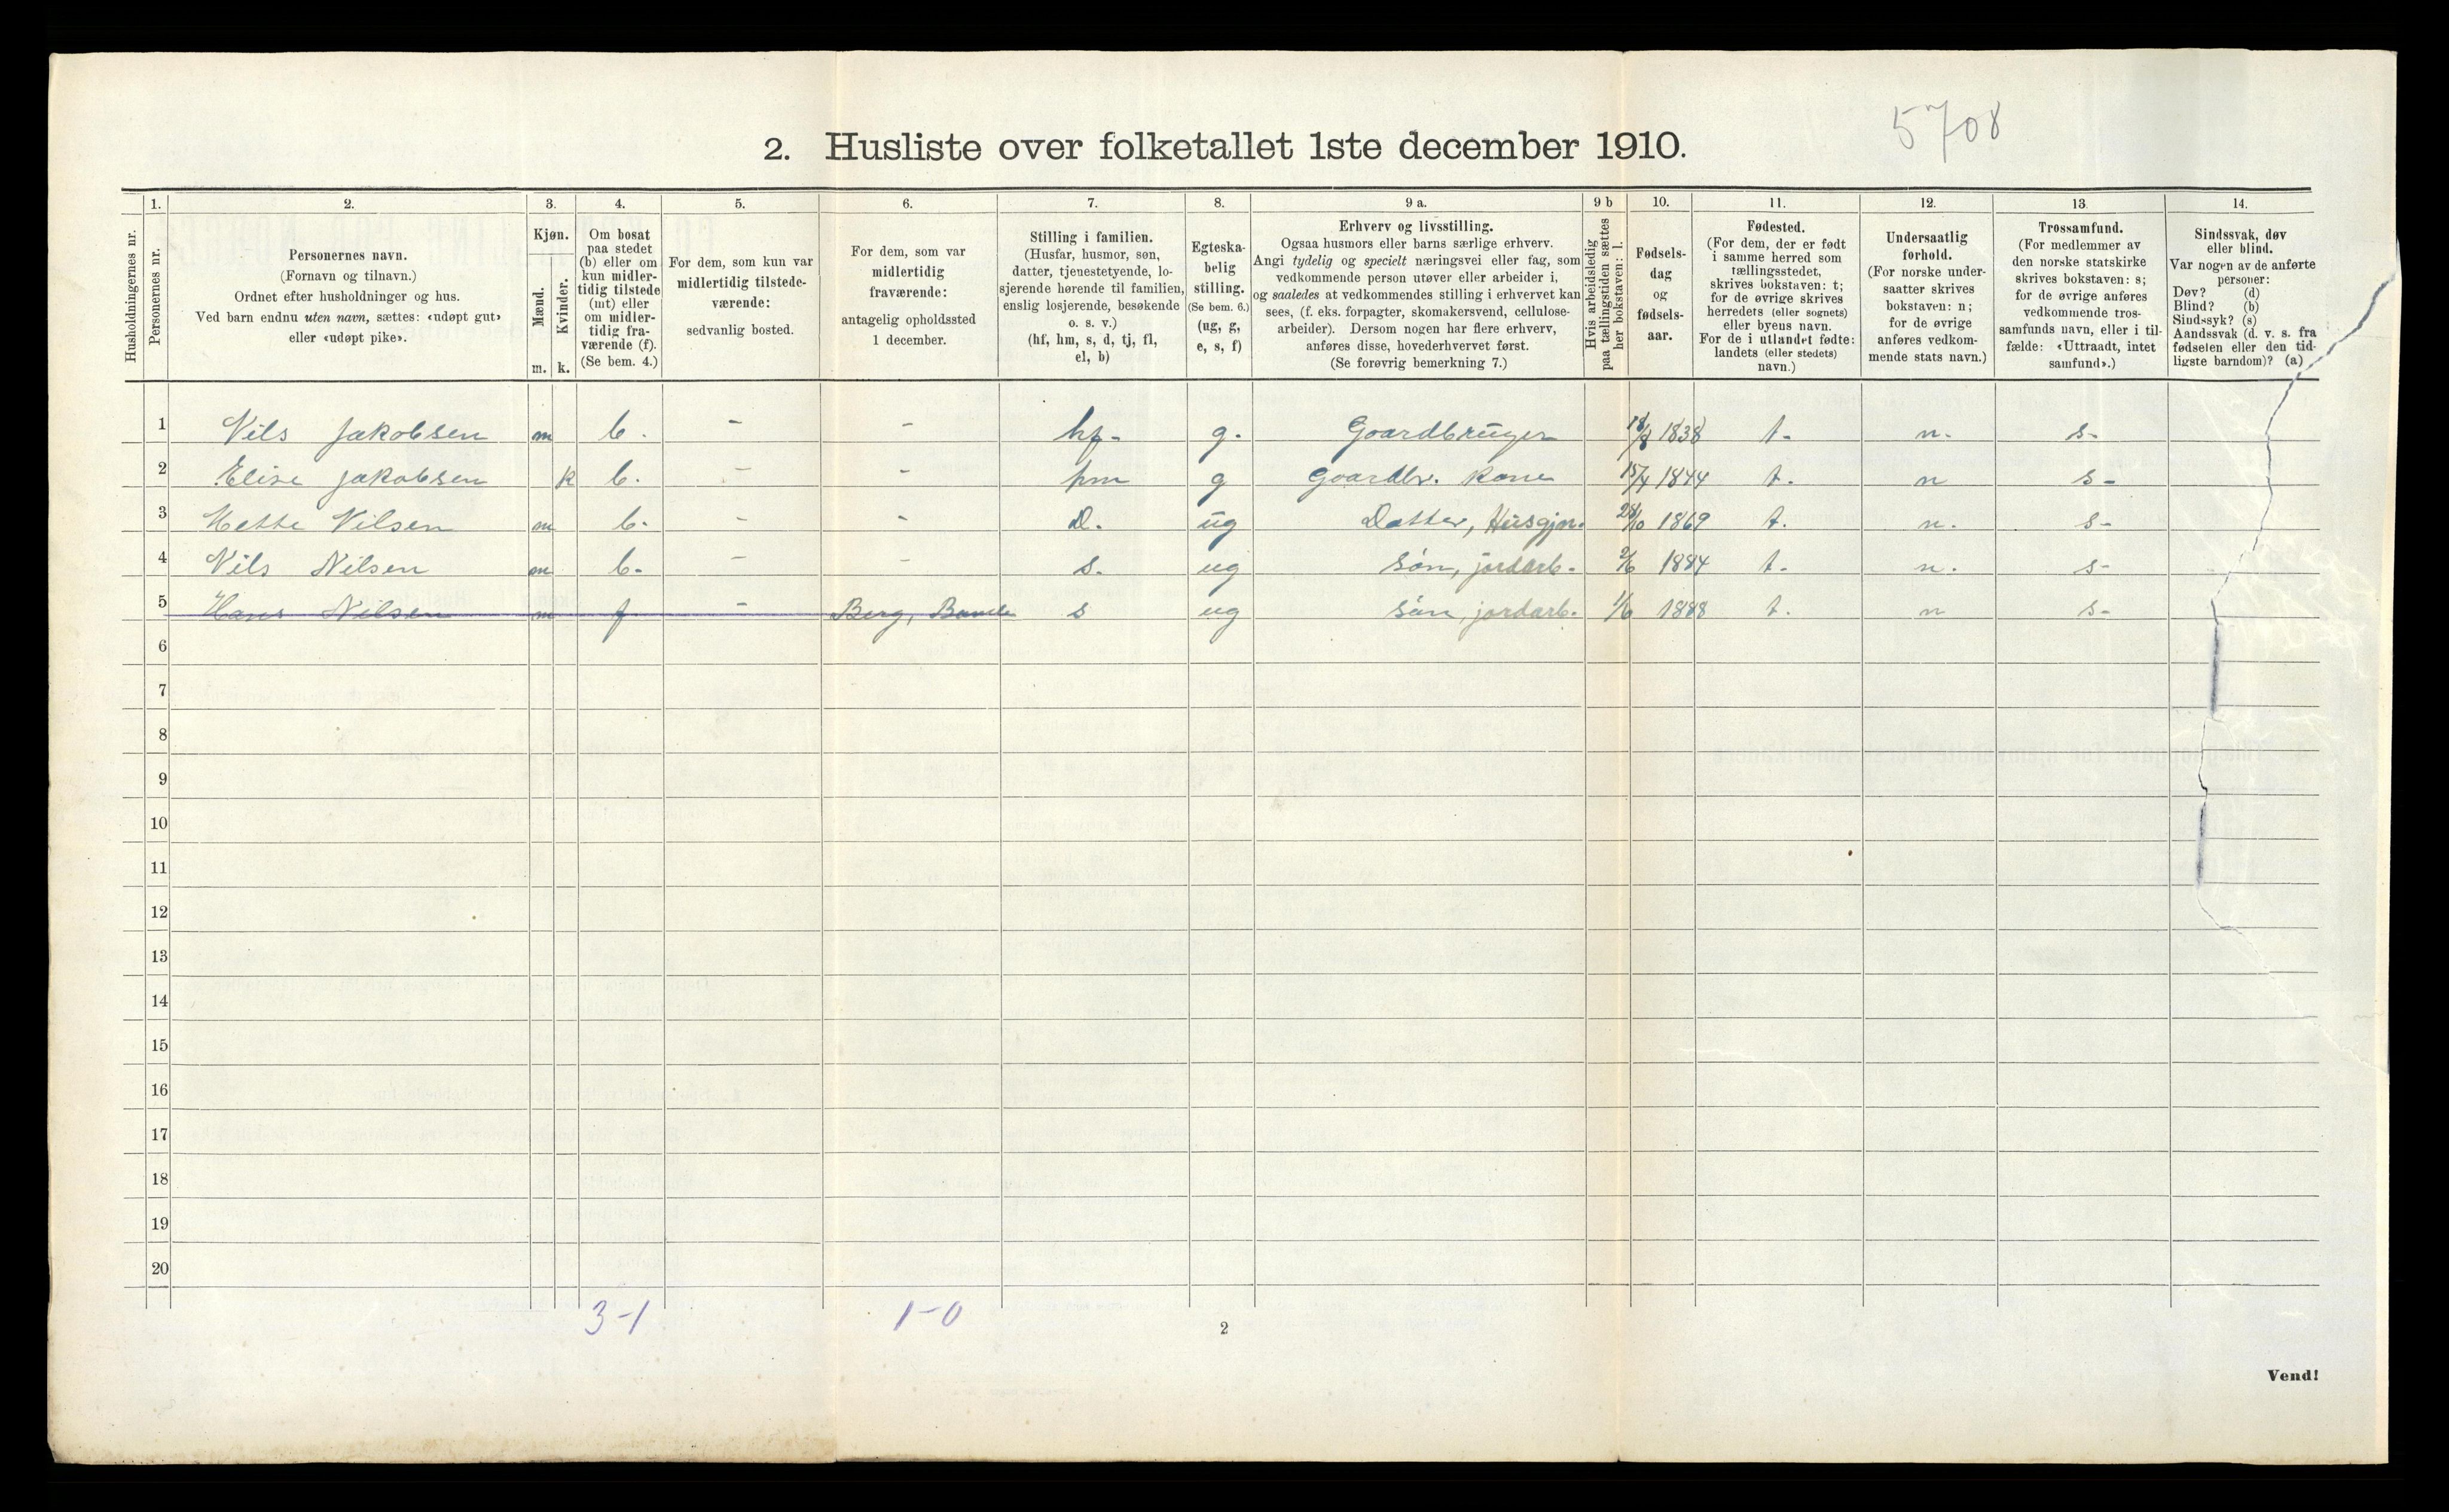 5708
2. Husliste over folketallet 1ste december 1910.
Husholdningernes nr.
1.
Personernes nr.
2.
Personernes navn.
(Fornavn og tilnavn.)
Ordnet efter husholdninger og hus.
Ved barn endnu uten navn, sættes: «udøpt gut»
eller «udøpt pike».
3.
Kjøn.
Mænd.
Kvinder.
m. k.
4.
Om bosat
paa stedet
(b) eller om
kun midler-
tidig tilstede
(mt) eller
om midler-
tidig fra-
værende (f).
(Se bem. 4.)
5.
For dem, som kun var
midlertidig tilstede-
værende:
sedvanlig bosted.
6.
For dem, som var
midlertidig
fraværende:
antagelig opholdssted
1 december.
7.
Stilling i familien.
(Husfar, husmor, søn,
datter, tjenestetyende, lo-
sjerende hørende til familien,
enslig losjerende, besøkende
o. s. v.)
(hf, hm, s, d, tj, fl,
el, b)
8.
Egteska-
belig
stilling.
(Se bem. 6.)
(ug, g,
e, s, f)
9 a.
Erhverv og livsstilling.
Ogsaa husmors eller barns særlige erhverv.
Angi tydelig og specielt næringsvei eller fag, som
vedkommende person utøver eller arbeider i,
og saaledes at vedkommendes stilling i erhvervet kan
sees, (f. eks. forpagter, skomakersvend, cellulose-
arbeider). Dersom nogen har flere erhverv,
anføres disse, hovederhvervet først.
(Se forøvrig bemerkning 7.)
9 b
Hvis arbeidsledig
paa tællingstiden sættes
her bokstaven: l.
10.
Fødsels-
dag
og
fødsels-
aar.
11.
Fødested.
(For dem, der er født
i samme herred som
tællingsstedet,
skrives bokstaven: t;
for de øvrige skrives
herredets (eller sognets)
eller byens navn.
For de i utlandet fødte:
landets (eller stedets)
navn.)
12.
Undersaatlig
forhold.
(For norske under-
saatter skrives
bokstaven: n;
for de øvrige
anføres vedkom-
mende stats navn.)
13.
Trossamfund.
(For medlemmer av
den norske statskirke
skrives bokstaven: s;
for de øvrige anføres
vedkommende tros-
samfunds navn, eller i til-
fælde: «Uttraadt, intet
samfund».)
14.
Sindssvak, døv
eller blind.
Var nogen av de anførte
personer:
Døv? (d)
Blind? (b)
Sindssyk? (s)
Aandssvak (d. v. s. fra
fødselen eller den tid-
ligste barndom)? (a)
1 Nils Jakobsen m b. - - hf- g. Goardbruger 18/8 1838 t- n- s-
2 Elise Jakobsen k b. - - hm g Goardbr. Kone 15/4 1844 t. n s-
3 Mette Nilsen m b. - - D. ug Datter, Husgjm. 28/10 1869 t. n. s-
4 Nils Nilsen m b. - - s. ug søn, jordarb. 2/6 1884 t. n. s-
5 Hans Nilsen m f - Berg, Bamle s ug søn, jordarb. 1/6 1888 t. n s-
6
7
8
9
10
11
12
13
14
15
16
17
18
19
20
3-1 1-0
2
Vend!